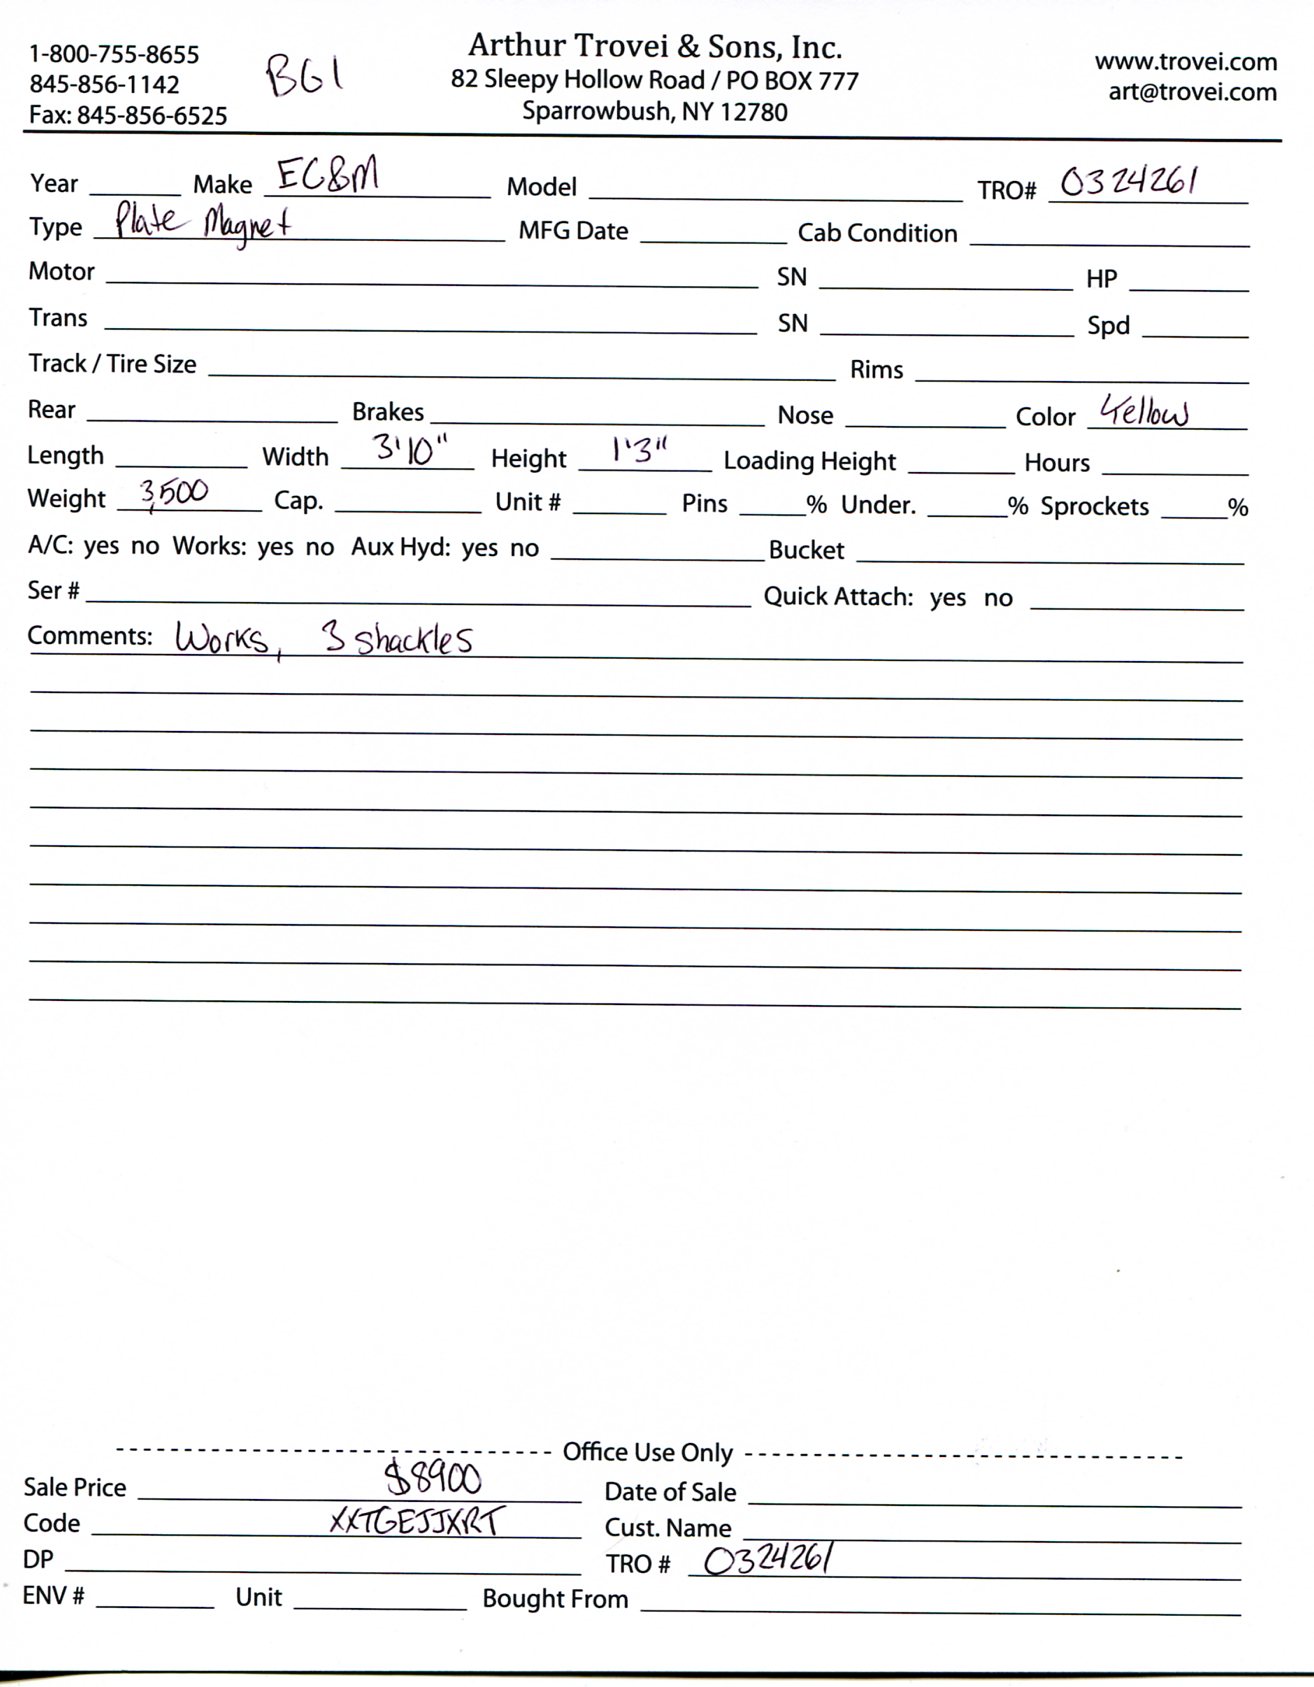 1-800-755-8655
845-856-1142
Fax: 845-856-6525
BG1
Arthur Trovei & Sons, Inc.
82 Sleepy Hollow Road / PO BOX 777
Sparrowbush, NY 12780
www.trovei.com
art@trovei.com
Year Make EC&M Model TRO# 0324261
Type Plate Magnet MFG Date Cab Condition
Motor SN HP
Trans SN Spd
Track / Tire Size Rims
Rear Brakes Nose Color Yellow
Length Width 3'10" Height 1'3" Loading Height Hours
Weight 3,500 Cap. Unit # Pins % Under. % Sprockets %
A/C: yes no Works: yes no Aux Hyd: yes no Bucket
Ser # Quick Attach: yes no
Comments: Works, 3 shackles
Office Use Only
Sale Price $8900 Date of Sale
Code XXTGEJJXRT Cust. Name
DP TRO # 0324261
ENV # Unit Bought From